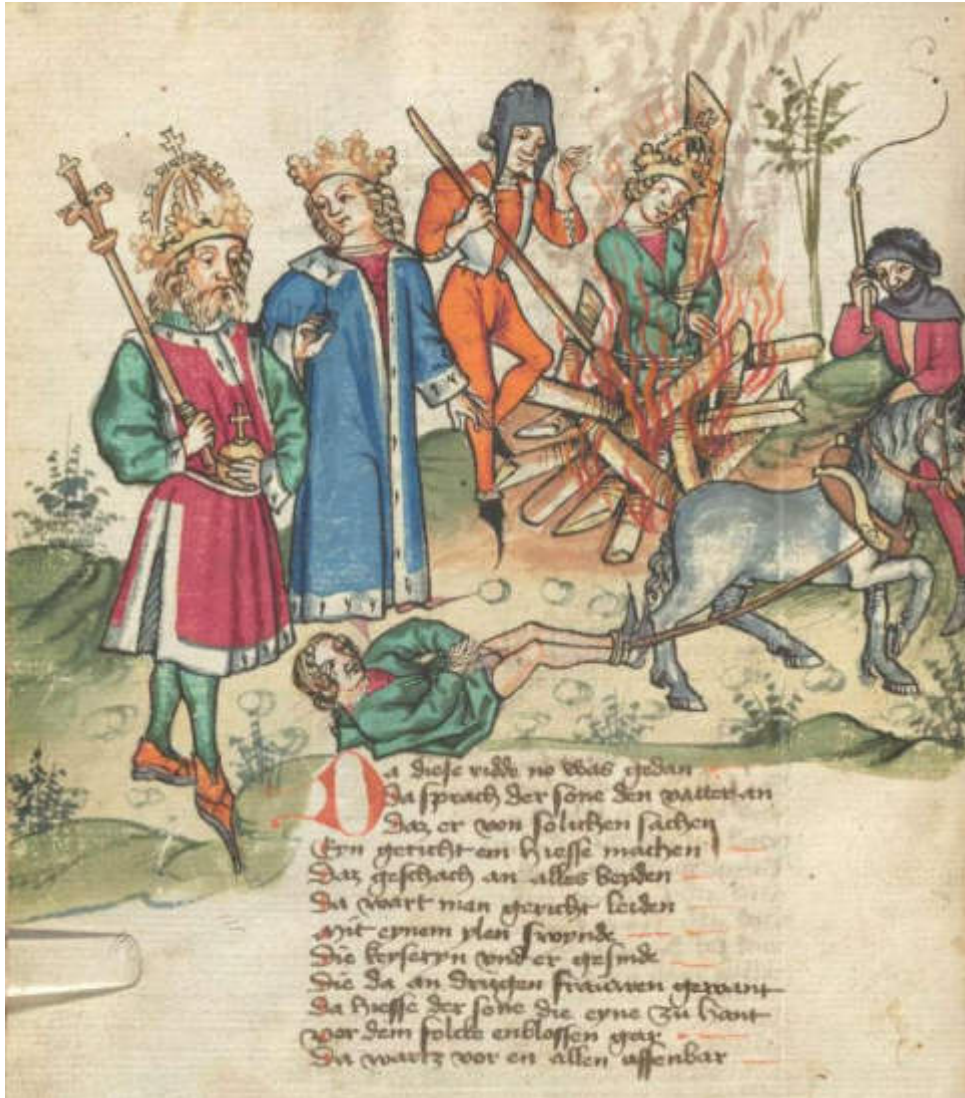 Da diese ridde no was gedan
Da sprach der sone den vatter an
Daz er von solichen sachen
Eyn gericht em hiesse machen
Daz geschach an alles beyden
Da wart man gericht leiden
Mit eynem ylen swynde
Die keyseryn vnd er gesinde
Die da an drijgen frauwen gewant
Da hiesse der sone die eyne zu hant
vor dem folcke enblossen gar
Da wartz vor en allen offenbar